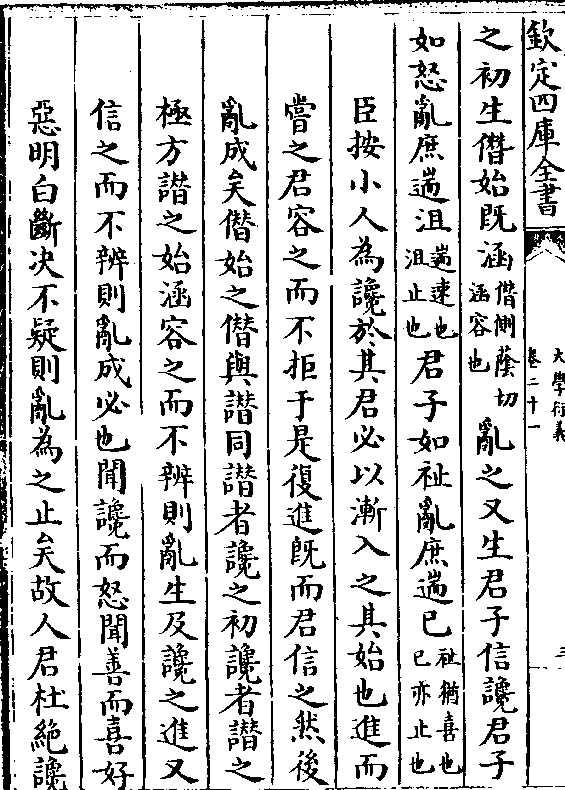 欽定四庫全書
大學衍義
卷二十一
三
之初生僭始既涵僭側䕃切涵容也亂之又生君子信讒君子
如怒亂庶遄沮遄速也沮止也君子如祉亂庶遄已祉猶喜也已亦止也
臣按小人為讒於其君必以漸入之其始也進而
嘗之君容之而不拒于是復進既而君信之然後
亂成矣僭始之僭與譖同譖者讒之初讒者譖之
極方譖之始涵容之而不辨則亂生及讒之進又
信之而不辨則亂成必也聞讒而怒聞善而喜好
惡明白斷決不疑則亂為之止矣故人君杜絶讒